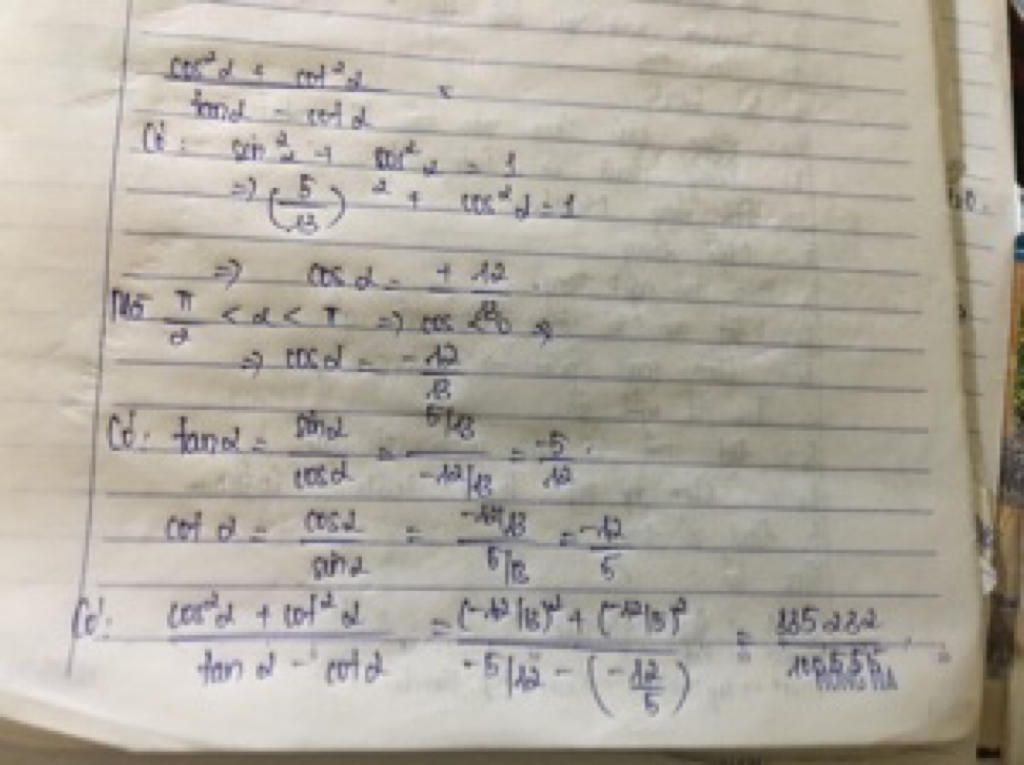 cos²α + cot²α
tanα - cotα
Có: sin²α + cos²α = 1
=> (5/13)² + cos²α = 1
=> cosα = ± 12/13
Mà π/2 < α < π => cos α < 0
=> cosα = -12/13
Có: tanα = sinα/cosα = 5/13 / -12/13 = -5/12.
cot α = cosα/sinα = -12/13 / 5/13 = -12/5
Có: cos²α + cot²α / tan α - cotα = (-12/13)² + (-12/5)² / -5/12 - (-12/5) =